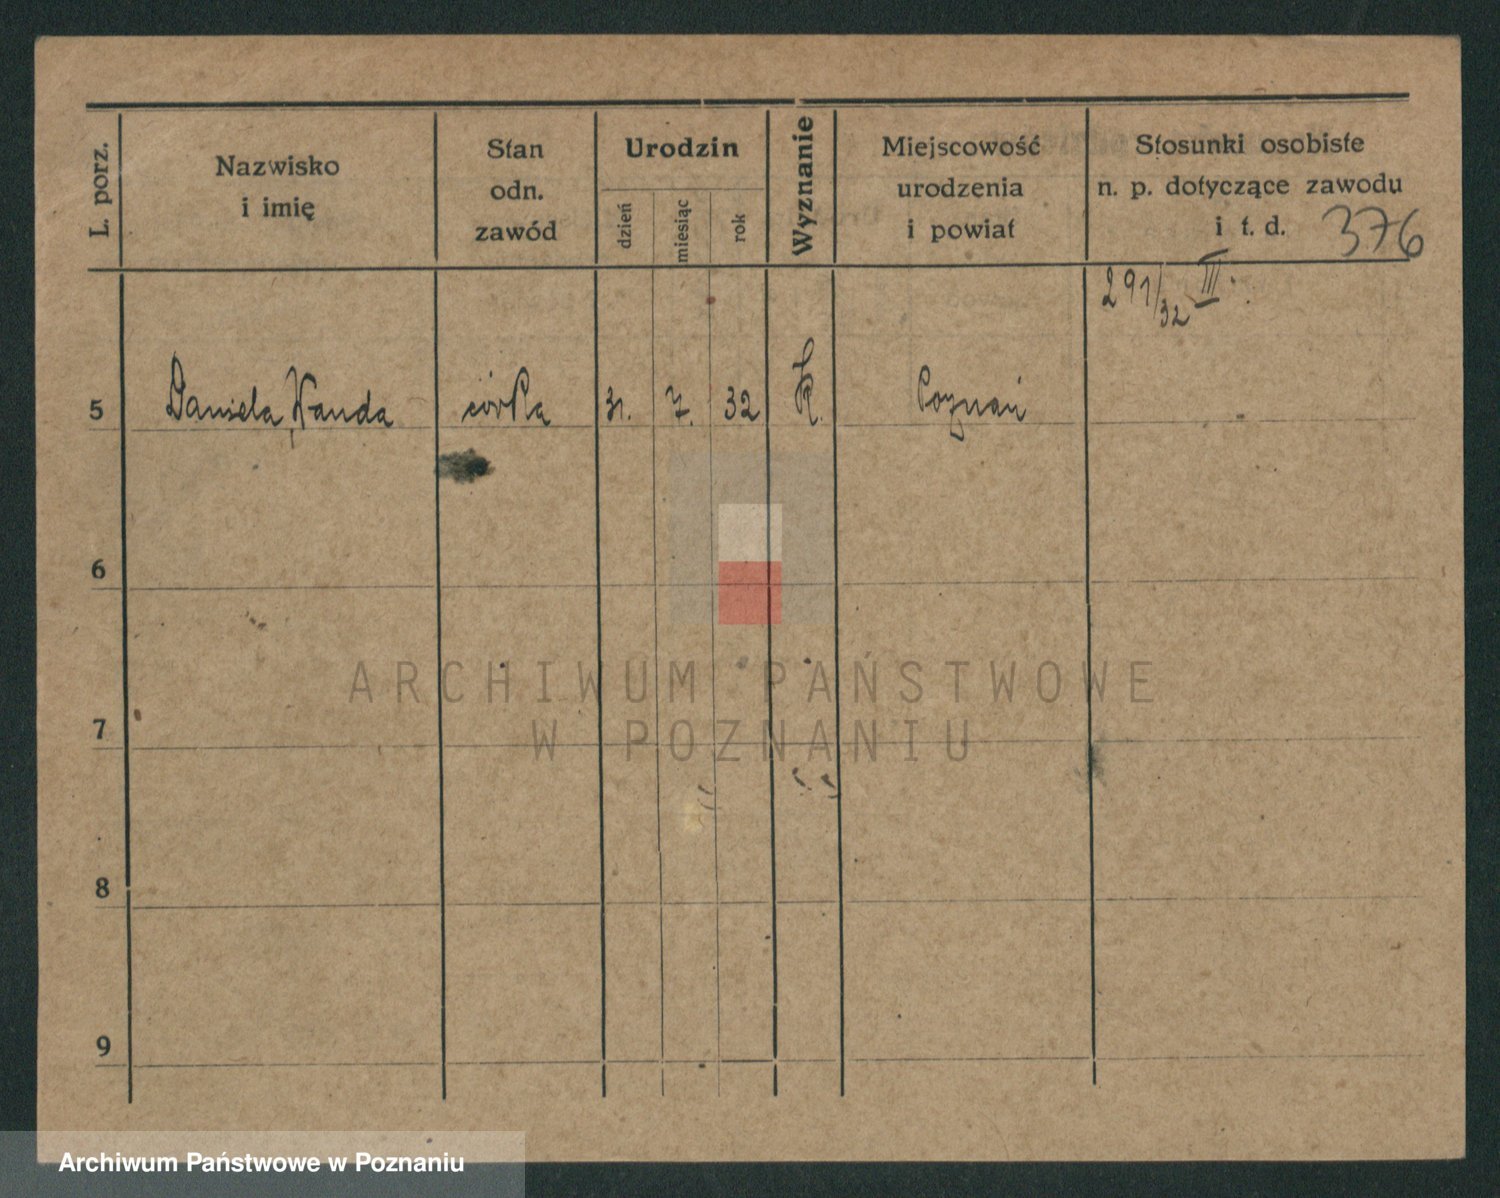 L. porz.
Nazwisko
i imię
Stan
odn.
zawód
Urodzin
dzień
miesiąc
rok
Wyznanie
Miejscowość
urodzenia
i powiat
Stosunki osobiste
n. p. dotyczące zawodu
i t. d. 376
291/32 III
5 Daniela, Wanda córka 31. 7. 32 Poznań
6
7
8
9
ARCHIWUM PAŃSTWOWE
W POZNANIU
Archiwum Państwowe w Poznaniu